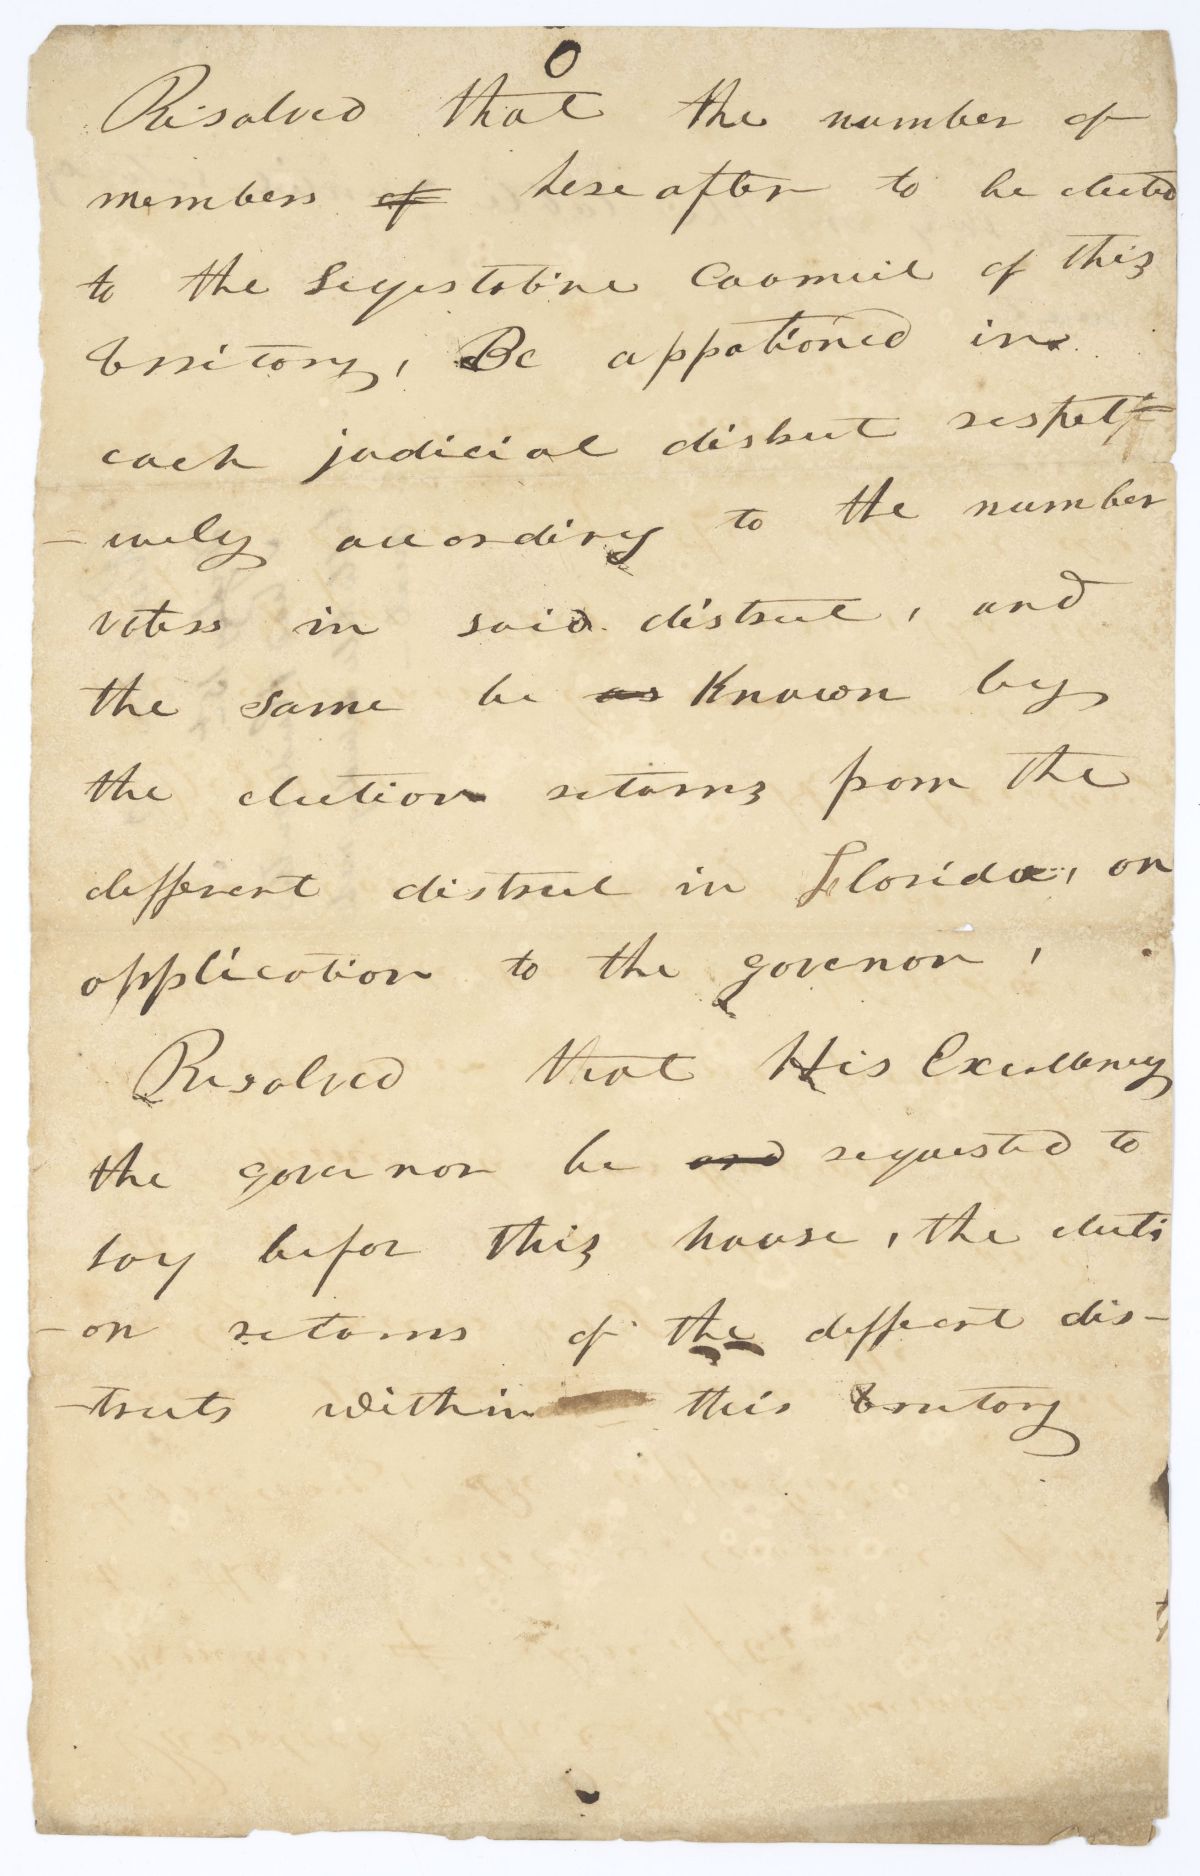 Resolved that the number of
members of here after to be elected
to the Legestative Council of this
territory, Be appotioned in
each judicial district respect
-ively according to the number
voters in said district, and
the same be as Known by
the election returns from the
different district in Florida, on
application to the govenor,
Resolved that His Excellency
the govenor be and requested to
lay befor this house, the electi
-on returns of the different dis-
-tricts within this territory